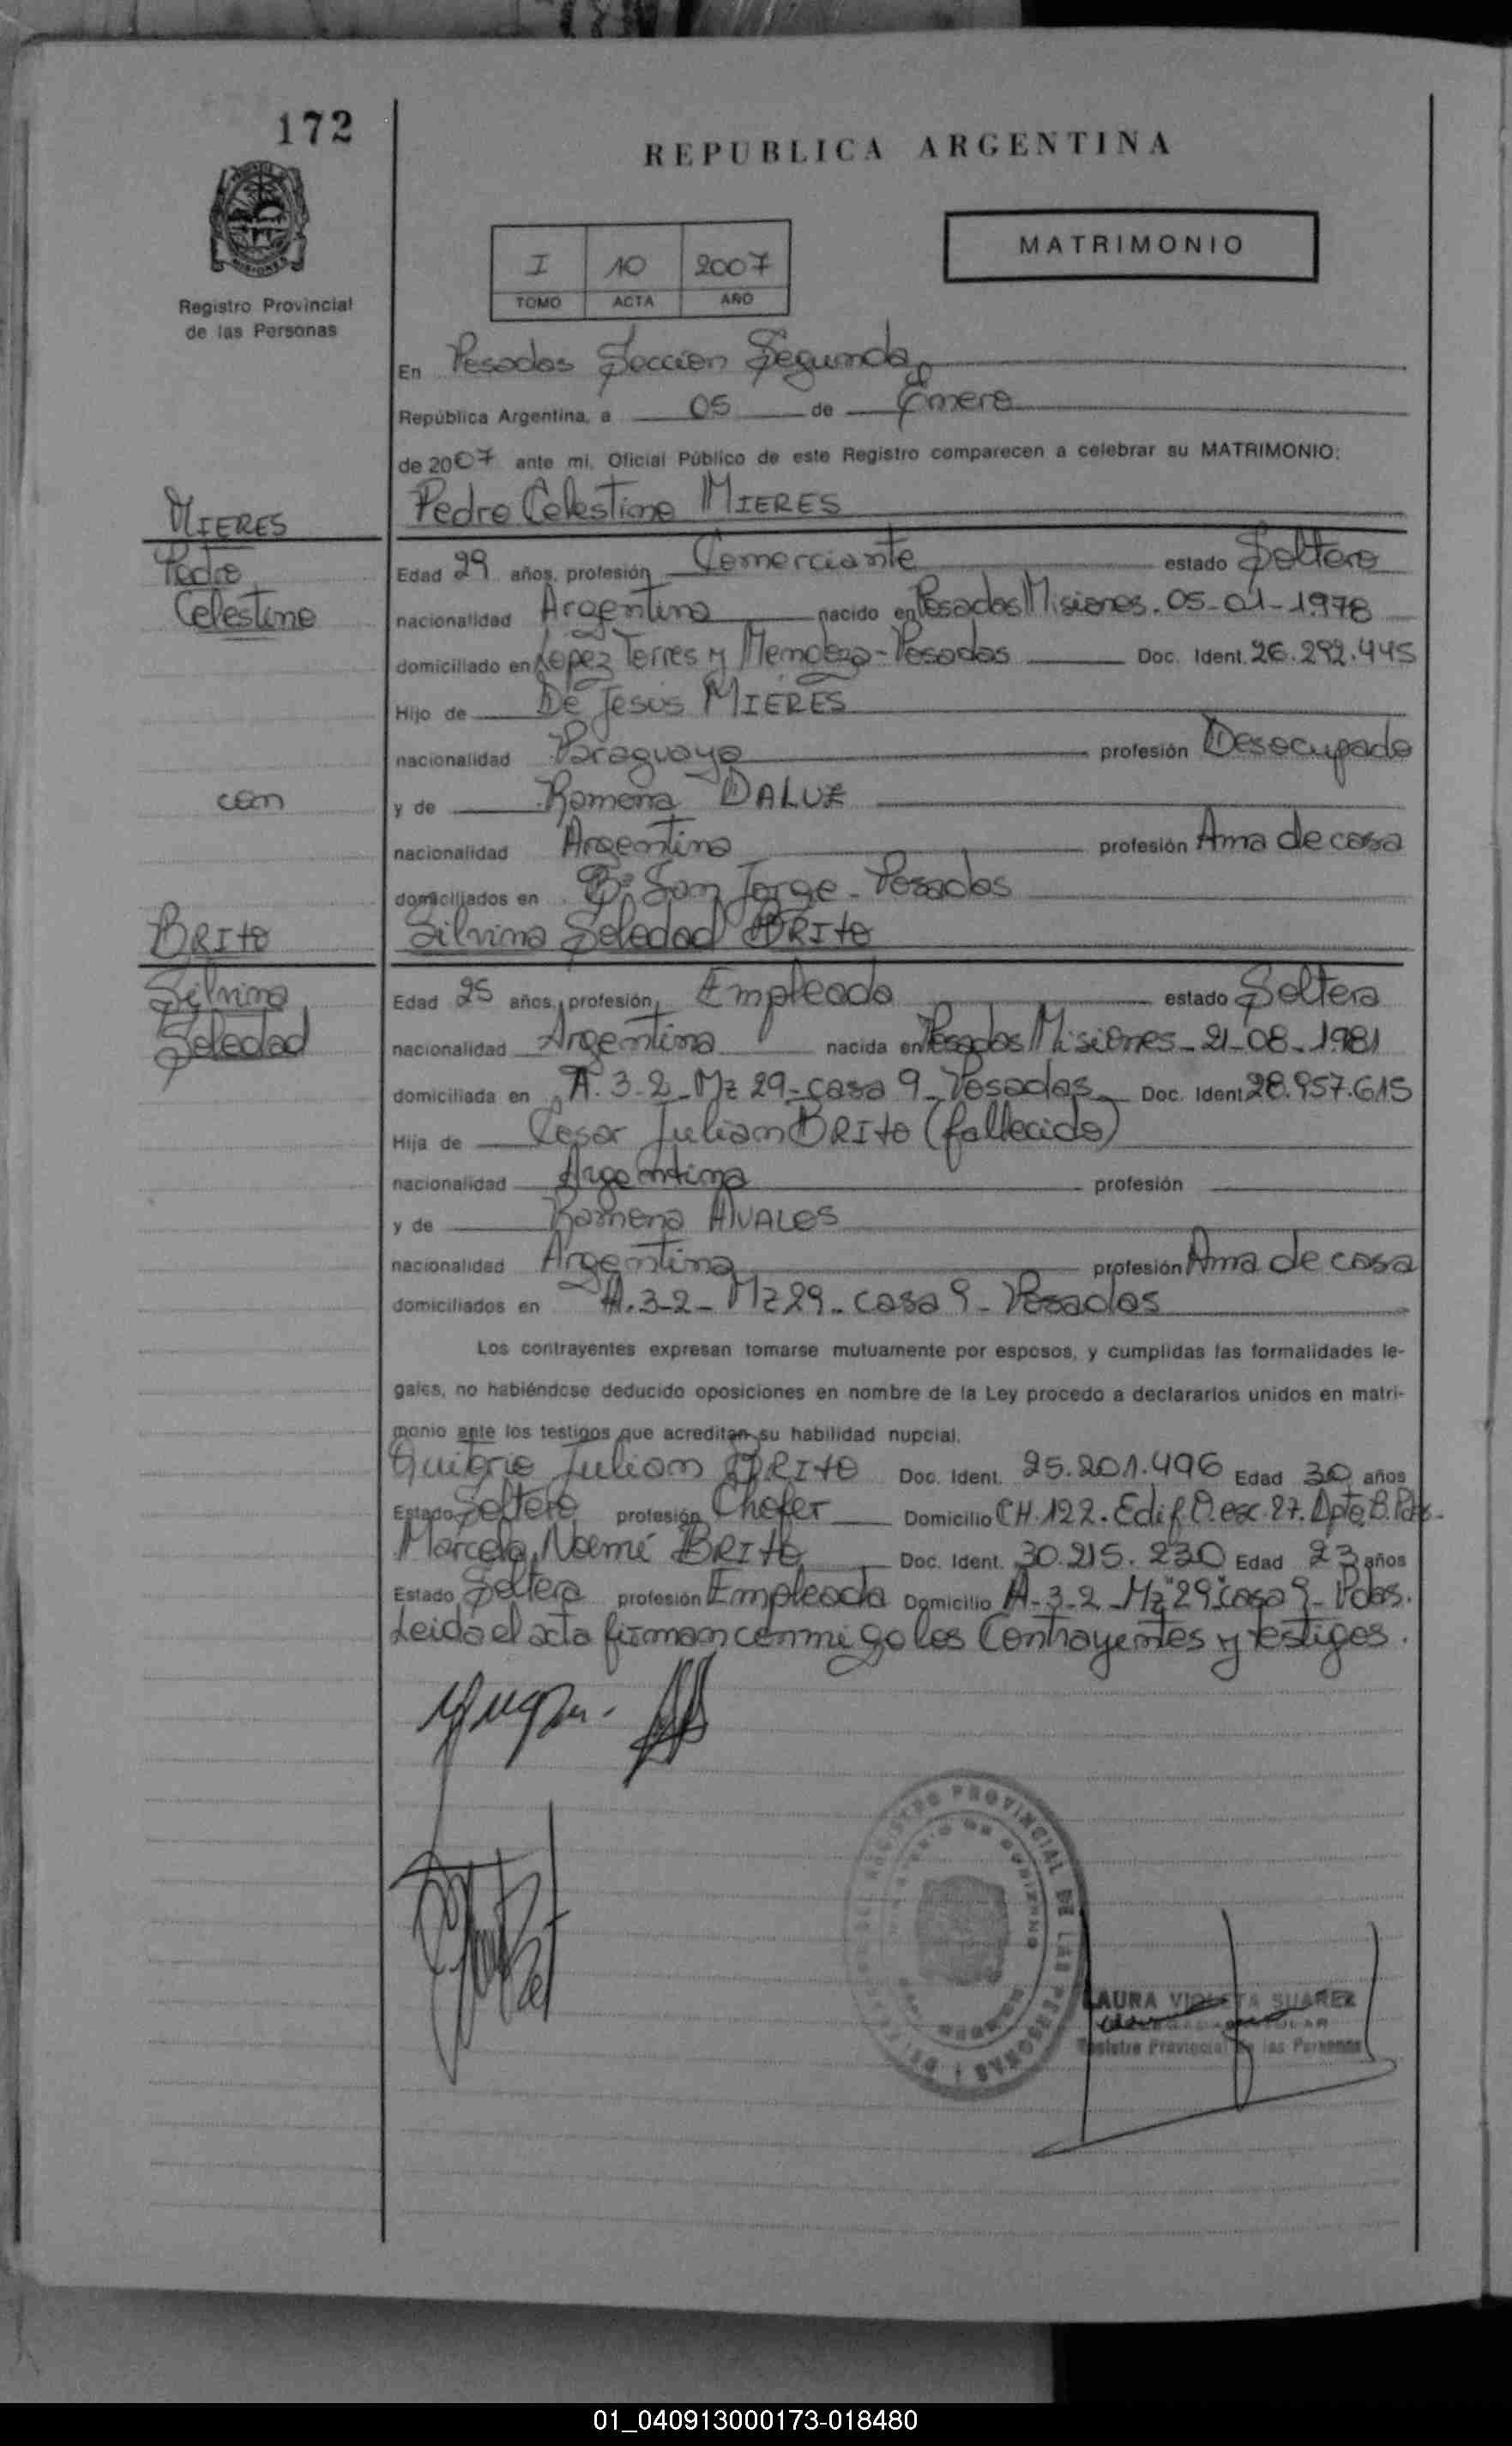 172
REPUBLICA ARGENTINA
MATRIMONIO
I 10 2007
TOMO ACTA AÑO
Registro Provincial
de las Personas
En Posadas Seccion Segunda
República Argentina, a 05 de Enero
de 2007 ante mi, Oficial Público de este Registro comparecen a celebrar su MATRIMONIO:
MIERES
Pedro Celestino MIERES
Pedro
Edad 29 años, profesión Comerciante estado Soltero
Celestino
nacionalidad Argentina nacido en Posadas Misiones. 05-01-1978
domiciliado en Lopez Torres y Mendoza - Posadas Doc. Ident. 26.292.445
Hijo de De Jesus MIERES
nacionalidad Paraguaya profesión Desocupado
con
y de Ramona DALUZ
nacionalidad Argentina profesión Ama de casa
domiciliados en Bº San Jorge - Posadas
BRITO
Silvina Soledad BRITO
Silvina
Edad 25 años, profesión Empleada estado Soltera
Soledad
nacionalidad Argentina nacida en Posadas Misiones - 21-08-1981
domiciliada en A. 3-2 - Mz 29 - casa 9 - Posadas Doc. Ident. 28.957.615
Hija de Cesar Julian BRITO (fallecido)
nacionalidad Argentina profesión
y de Ramona AVALOS
nacionalidad Argentina profesión Ama de casa
domiciliados en A. 3-2 - Mz 29 - casa 9 - Posadas
Los contrayentes expresan tomarse mutuamente por esposos, y cumplidas las formalidades le-
gales, no habiéndose deducido oposiciones en nombre de la Ley procedo a declararlos unidos en matri-
monio ante los testigos que acreditan su habilidad nupcial.
Julian BRITO Doc. Ident. 25.201.496 Edad 30 años
Estado Soltero profesión Chofer Domicilio CH. 122. Edif. O. esc. 27. Dpto B. Pdas.
Marcela Noemi BRITO Doc. Ident. 30.215.230 Edad 23 años
Estado Soltera profesión Empleada Domicilio A-3-2 Mz "29" casa 9 - Pdas.
Leida el acta firman conmigo los Contrayentes y testigos.
REGISTRO PROVINCIAL DE LAS PERSONAS
LAURA VIOLETA SUAREZ
Registro Provincial de las Personas
01_040913000173-018480